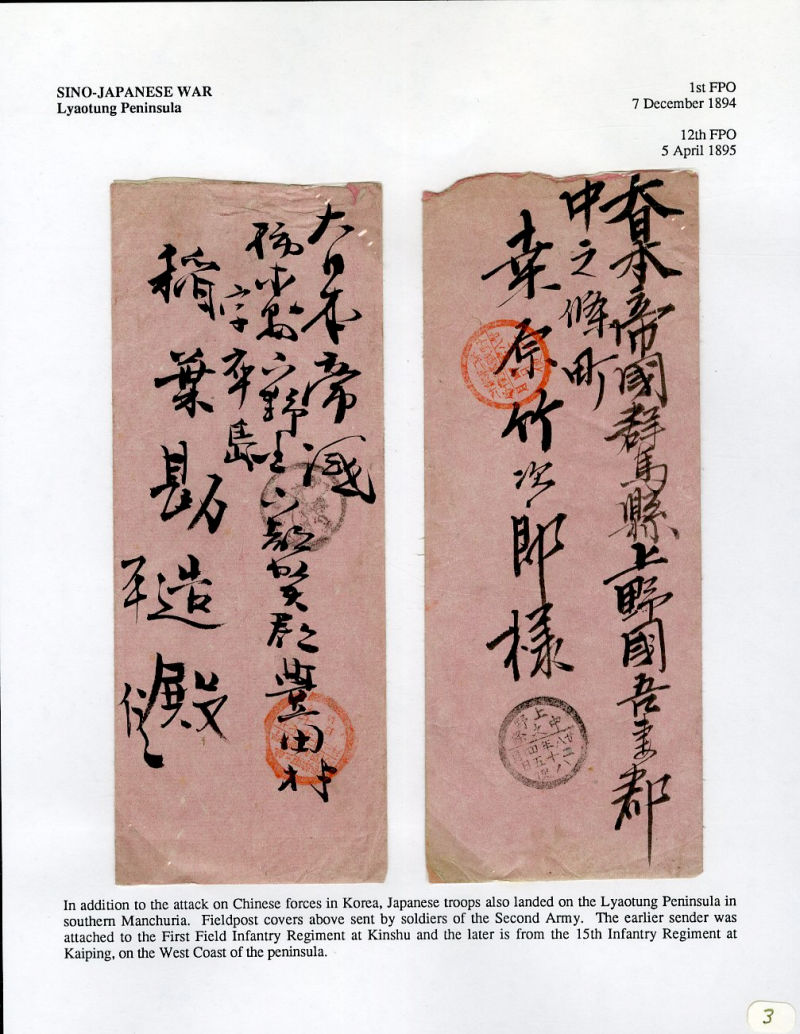 SINO-JAPANESE WAR
Lyaotung Peninsula
1st FPO
7 December 1894
12th FPO
5 April 1895
大日本帝國
栃木縣下野國
郡豊田村
字卒島
稲葉勘造殿
大日本帝國群馬縣上野國吾妻郡
中之條町
桒原竹次郎様
上野
中之條
In addition to the attack on Chinese forces in Korea, Japanese troops also landed on the Lyaotung Peninsula in
southern Manchuria. Fieldpost covers above sent by soldiers of the Second Army. The earlier sender was
attached to the First Field Infantry Regiment at Kinshu and the later is from the 15th Infantry Regiment at
Kaiping, on the West Coast of the peninsula.
3